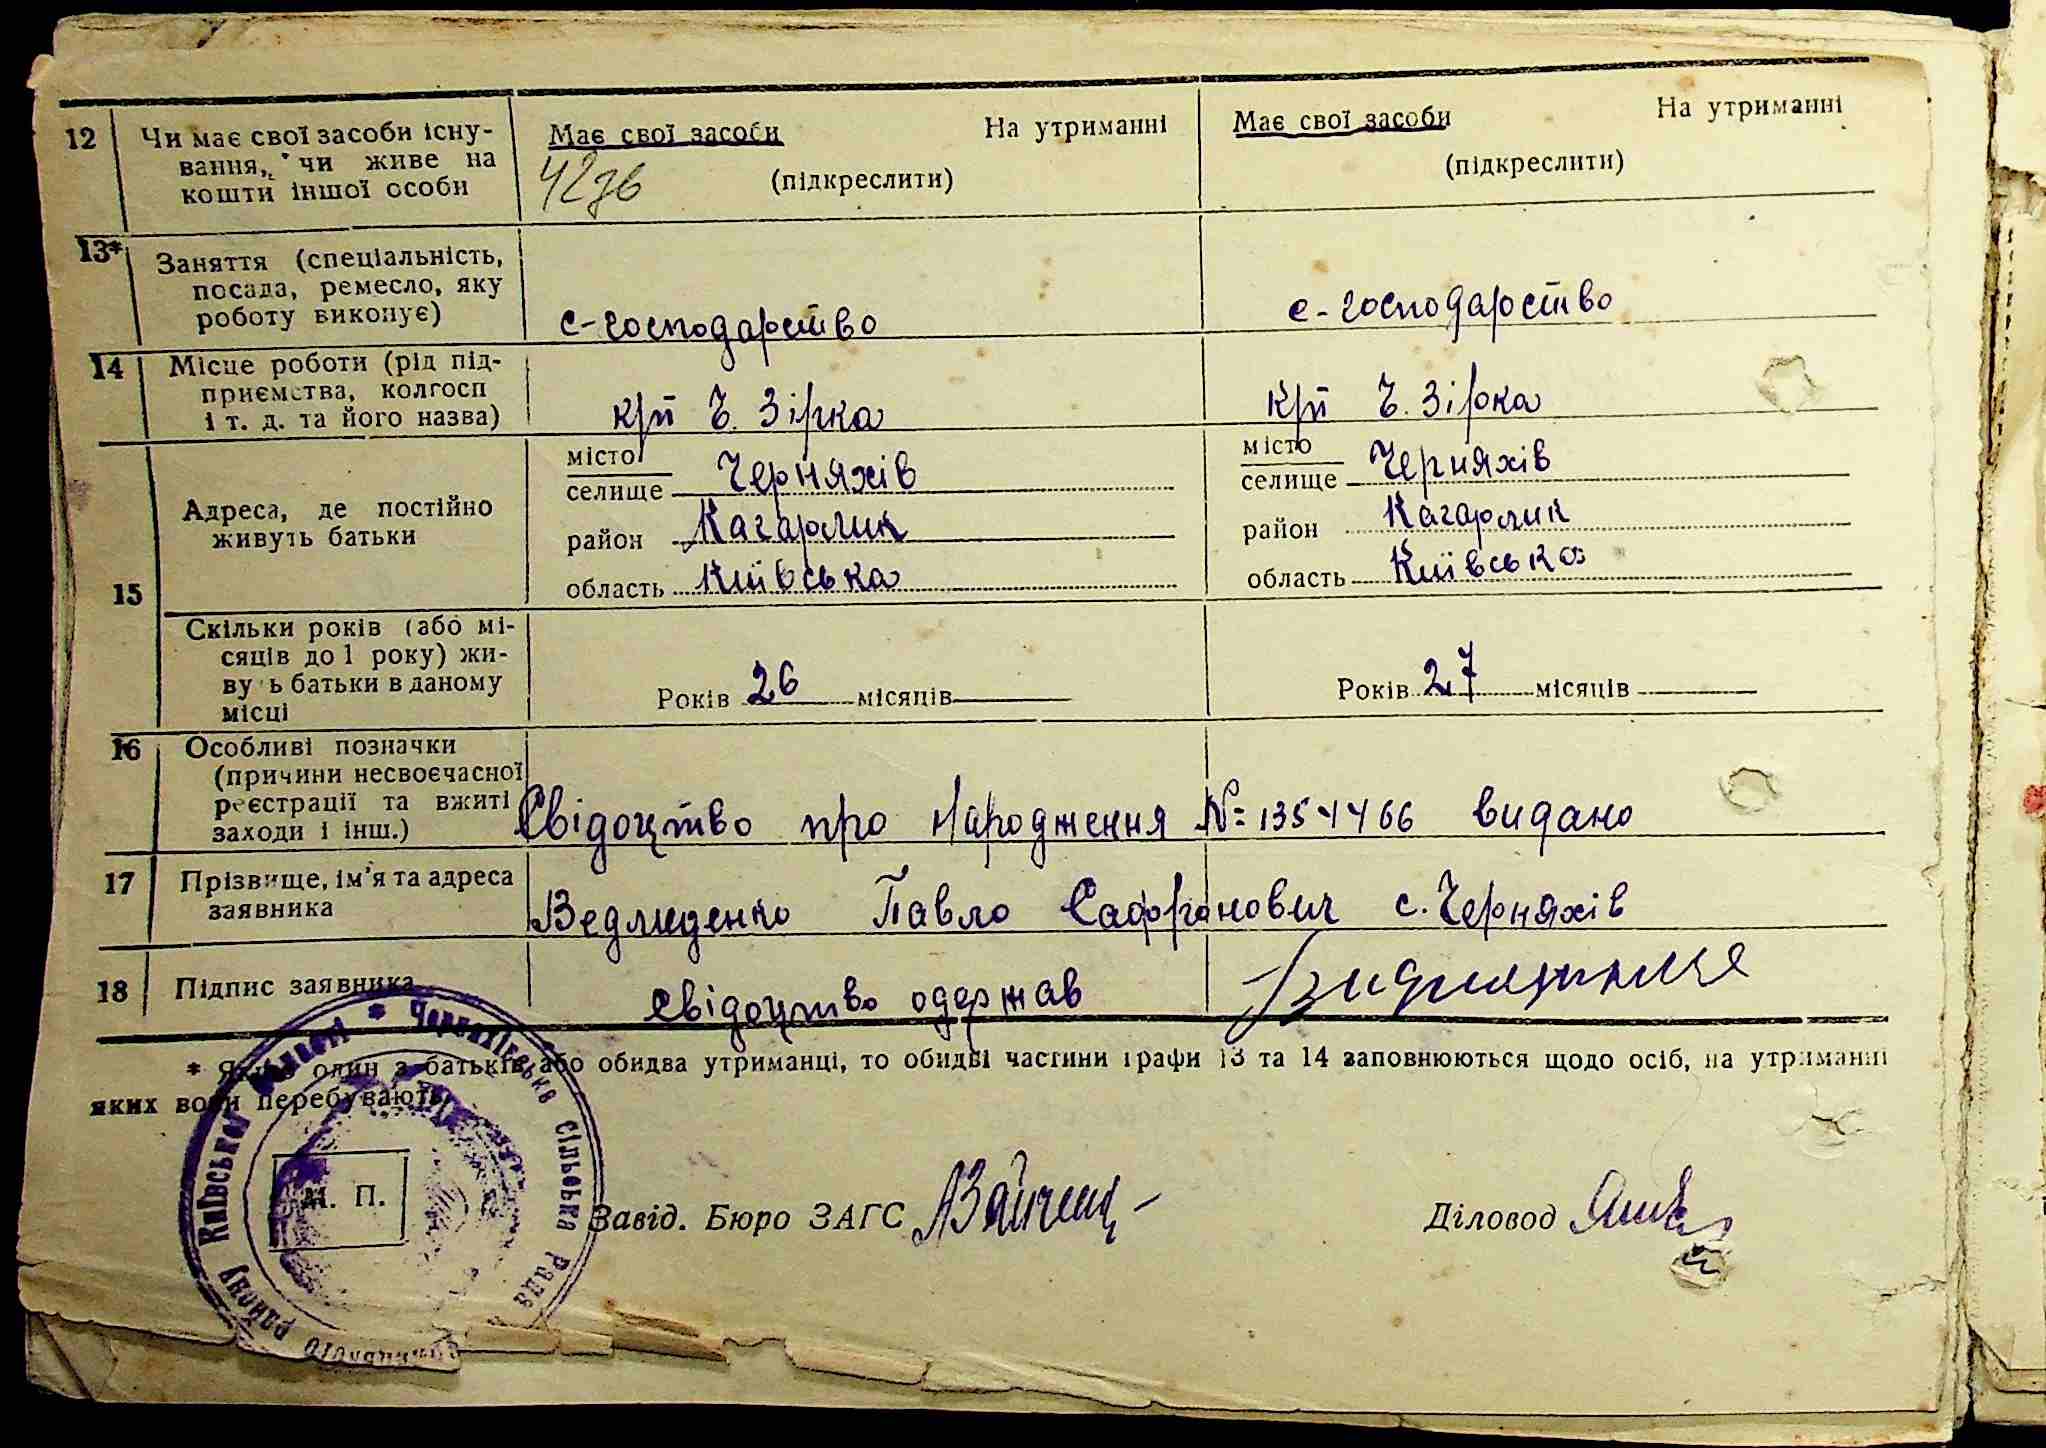 12 Чи має свої засоби існу-
вання, чи живе на
кошти іншої особи
Має свої засоби На утриманні
(підкреслити)
Має свої засоби На утриманні
(підкреслити)
13* Заняття (спеціальність,
посада, ремесло, яку
роботу виконує)
с-господарство
с-господарство
14 Місце роботи (рід під-
приємства, колгосп
і т. д. та його назва)
крп Ч. Зірка
крп Ч. Зірка
15 Адреса, де постійно
живуть батьки
місто
селище Черняхів
район Кагарлик
область Київська
місто
селище Черняхів
район Кагарлик
область Київська
Скільки років (або мі-
сяців до 1 року) жи-
ву ь батьки в даному
місці
Років 26 місяців
Років 27 місяців
16 Особливі позначки
(причини несвоєчасної
реєстрації та вжиті
заходи і інш.)
Свідоцтво про народження №
видано
17 Прізвище, ім'я та адреса
заявника
Ведмеденко Павло с. Черняхів
18 Підпис заявника
свідоцтво одержав
* Якщо один з батьків або обидва утриманці, то обидві частини графи 13 та 14 заповнюються щодо осіб, на утриманні
яких вони перебувають
Черняхівська Сільська Рада
району Київської області
М. П.
Завід. Бюро ЗАГС
Діловод